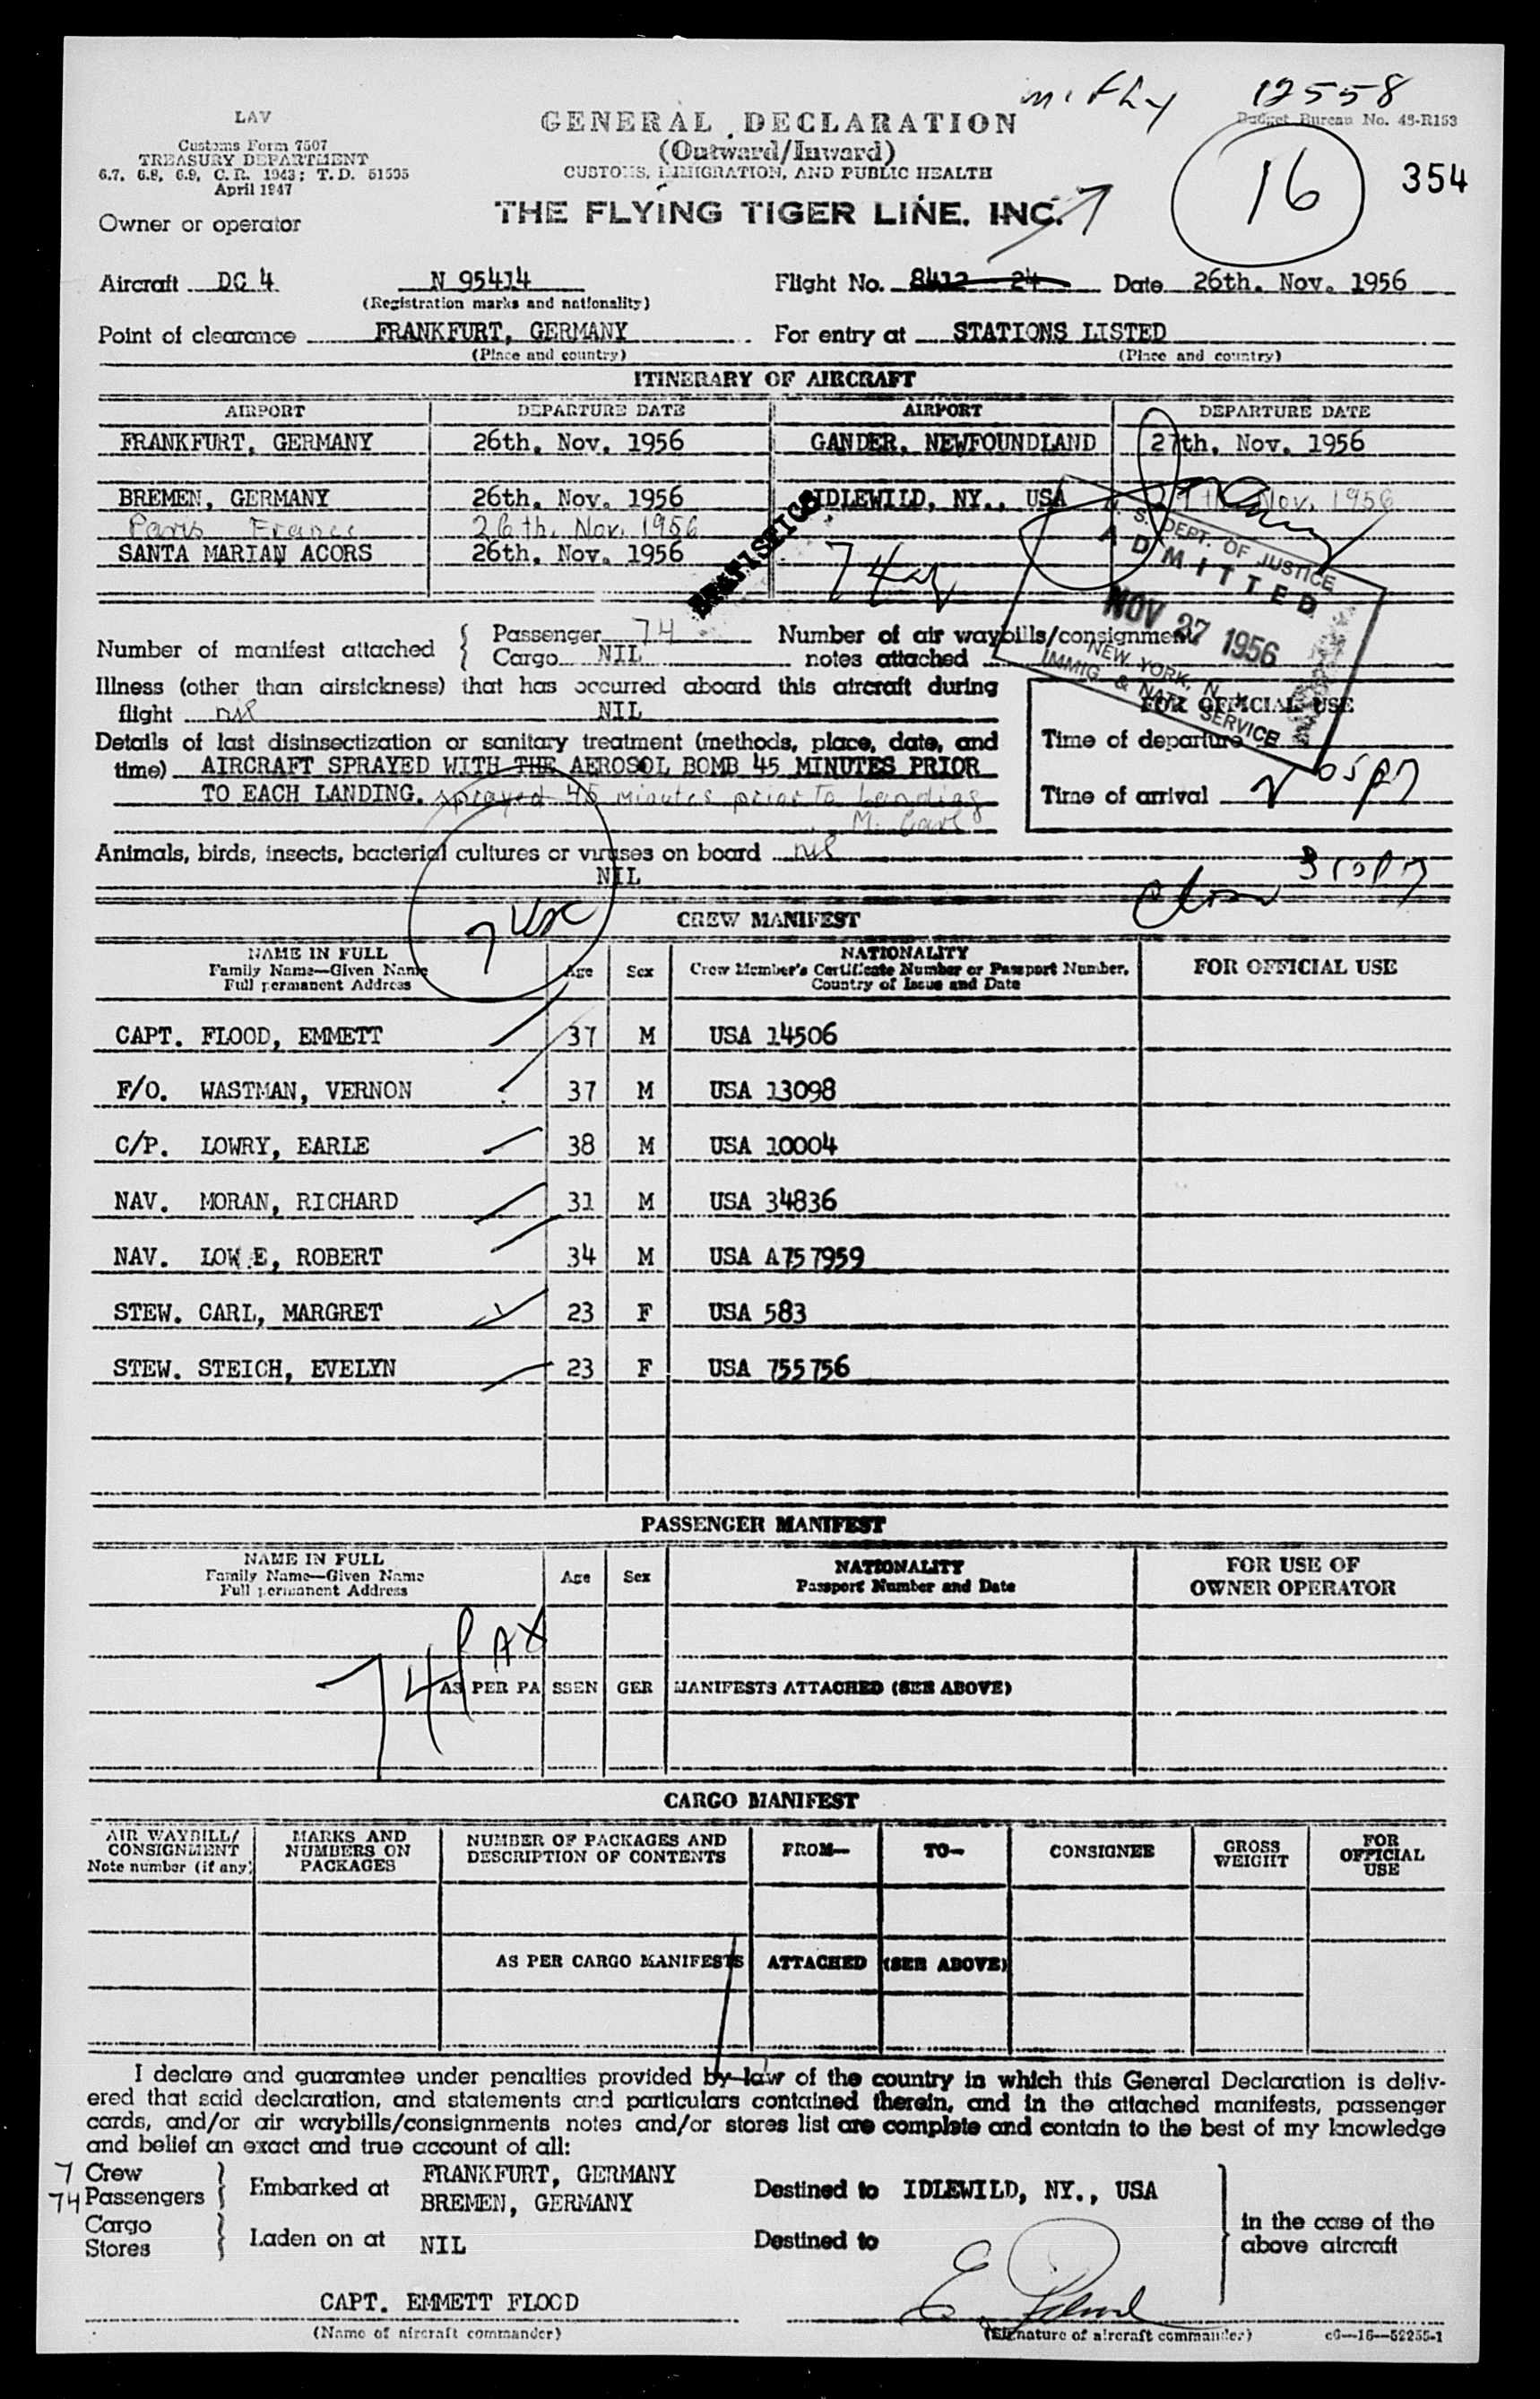 12558
LAV
GENERAL DECLARATION
Budget Bureau No. 48-R153
Customs Form 7507
(Outward/Inward)
TREASURY DEPARTMENT
CUSTOMS, IMMIGRATION, AND PUBLIC HEALTH
6.7, 6.8, 6.9, C. R. 1943; T. D. 51595
April 1947
16
354
Owner or operator
THE FLYING TIGER LINE. INC.
Aircraft DC 4 N 95414 Flight No. 8412 24 Date 26th. Nov. 1956
(Registration marks and nationality)
Point of clearance FRANKFURT, GERMANY For entry at STATIONS LISTED
(Place and country) (Place and country)
ITINERARY OF AIRCRAFT
AIRPORT DEPARTURE DATE AIRPORT DEPARTURE DATE
FRANKFURT, GERMANY 26th. Nov. 1956 GANDER, NEWFOUNDLAND 27th. Nov. 1956
BREMEN, GERMANY 26th. Nov. 1956 IDLEWILD, NY., USA 27th Nov. 1956
Paris France 26th. Nov. 1956
SANTA MARIAN ACORS 26th. Nov. 1956
74
U. S. DEPT. OF JUSTICE
ADMITTED
NOV 27 1956
NEW YORK, N. Y.
IMMIG. & NATZ. SERVICE
Number of manifest attached { Passenger 74 Number of air waybills/consignment
Cargo NIL notes attached
Illness (other than airsickness) that has occurred aboard this aircraft during
flight nil NIL
FOR OFFICIAL USE
Details of last disinsectization or sanitary treatment (methods, place, date, and
time) AIRCRAFT SPRAYED WITH THE AEROSOL BOMB 45 MINUTES PRIOR
TO EACH LANDING. sprayed 45 minutes prior to landing
M. Carl
Time of departure
Time of arrival
Animals, birds, insects, bacterial cultures or viruses on board nil
NIL
CREW MANIFEST
NAME IN FULL
Family Name—Given Name
Full permanent Address
Age Sex
NATIONALITY
Crew Member's Certificate Number or Passport Number,
Country of Issue and Date
FOR OFFICIAL USE
CAPT. FLOOD, EMMETT 37 M USA 14506
F/O. WASTMAN, VERNON 37 M USA 13098
C/P. LOWRY, EARLE 38 M USA 10004
NAV. MORAN, RICHARD 31 M USA 34836
NAV. LOWE, ROBERT 34 M USA A757959
STEW. CARL, MARGRET 23 F USA 583
STEW. STEICH, EVELYN 23 F USA 755756
PASSENGER MANIFEST
NAME IN FULL
Family Name—Given Name
Full permanent Address
Age Sex
NATIONALITY
Passport Number and Date
FOR USE OF
OWNER OPERATOR
74 PAX
AS PER PASSENGER MANIFESTS ATTACHED (SEE ABOVE)
CARGO MANIFEST
AIR WAYBILL/
CONSIGNMENT
Note number (if any)
MARKS AND
NUMBERS ON
PACKAGES
NUMBER OF PACKAGES AND
DESCRIPTION OF CONTENTS
FROM— TO— CONSIGNEE
GROSS
WEIGHT
FOR
OFFICIAL
USE
AS PER CARGO MANIFESTS ATTACHED (SEE ABOVE)
I declare and guarantee under penalties provided by law of the country in which this General Declaration is deliv-
ered that said declaration, and statements and particulars contained therein, and in the attached manifests, passenger
cards, and/or air waybills/consignments notes and/or stores list are complete and contain to the best of my knowledge
and belief an exact and true account of all:
7 Crew
74 Passengers } Embarked at FRANKFURT, GERMANY
BREMEN, GERMANY Destined to IDLEWILD, NY., USA
Cargo
Stores } Laden on at NIL Destined to
in the case of the
above aircraft
CAPT. EMMETT FLOOD E. Flood
(Name of aircraft commander) (Signature of aircraft commander) c6—16—52255-1